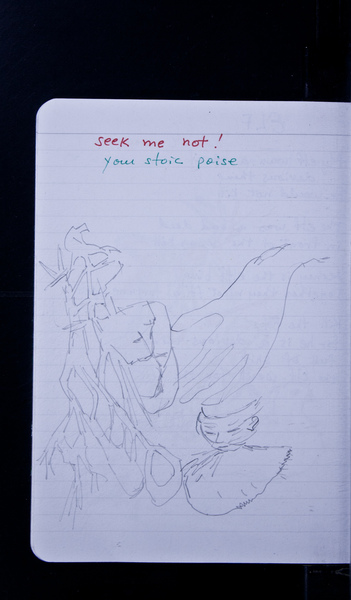 seek me not!
your stoic poise